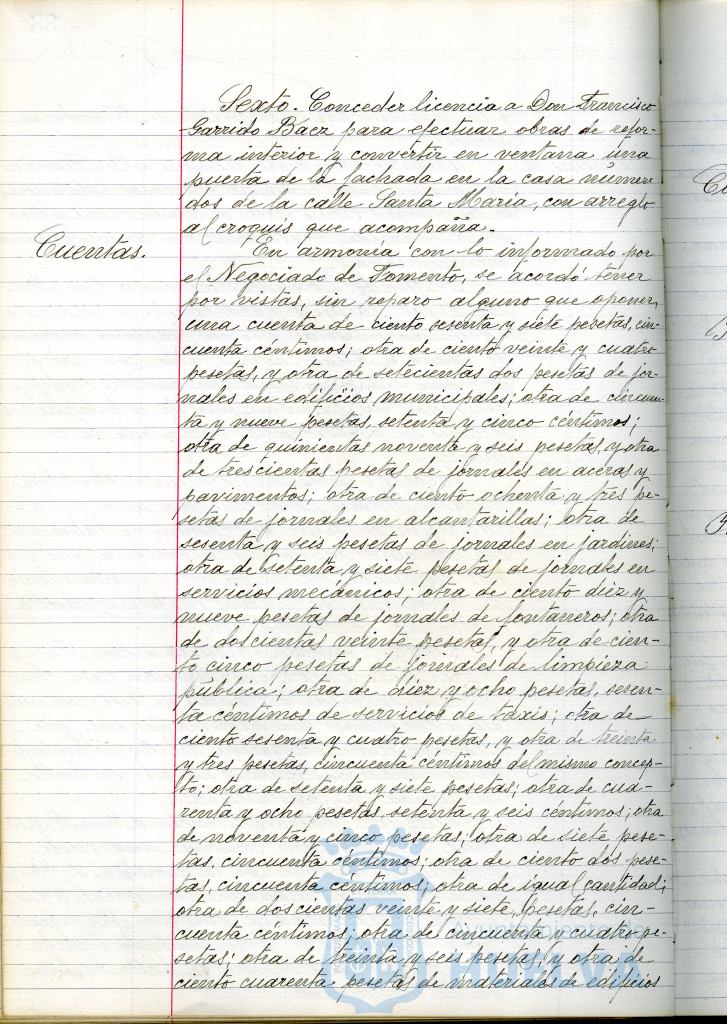 Sexto. Conceder licencia a Don Francisco
Garrido Báez para efectuar obras de refor-
ma interior y convertir en ventana una
puerta de la fachada en la casa número
dos de la calle Santa María, con arreglo
al croquis que acompaña.
Cuentas.
En armonía con lo informado por
el Negociado de Fomento, se acordó tener
por vistas, sin reparo alguno que oponer,
una cuenta de ciento sesenta y siete pesetas, cin-
cuenta céntimos; otra de ciento veinte y cuatro
pesetas, y otra de setecientas dos pesetas de jor-
nales en edificios municipales; otra de cincuen-
ta y nueve pesetas, setenta y cinco céntimos;
otra de quinientas noventa y seis pesetas, y otra
de trescientas pesetas de jornales en aceras y
pavimentos; otra de ciento ochenta y tres pe-
setas de jornales en alcantarillas; otra de
sesenta y seis pesetas de jornales en jardines;
otra de setenta y siete pesetas de jornales en
servicios mecánicos; otra de ciento diez y
nueve pesetas de jornales de fontaneros; otra
de doscientas veinte pesetas, y otra de cien-
to cinco pesetas de jornales de limpieza
pública; otra de diez y ocho pesetas, sesen-
ta céntimos de servicios de taxis; otra de
ciento sesenta y cuatro pesetas, y otra de treinta
y tres pesetas, cincuenta céntimos del mismo concep-
to; otra de setenta y siete pesetas; otra de cua-
renta y ocho pesetas, setenta y seis céntimos; otra
de noventa y cinco pesetas; otra de siete pese-
tas, cincuenta céntimos; otra de ciento dos pese-
tas, cincuenta céntimos; otra de igual cantidad;
otra de doscientas veinte y siete pesetas, cin-
cuenta céntimos; otra de cincuenta y cuatro pe-
setas; otra de treinta y seis pesetas, y otra de
ciento cuarenta pesetas de materiales de edificios
HUELVA